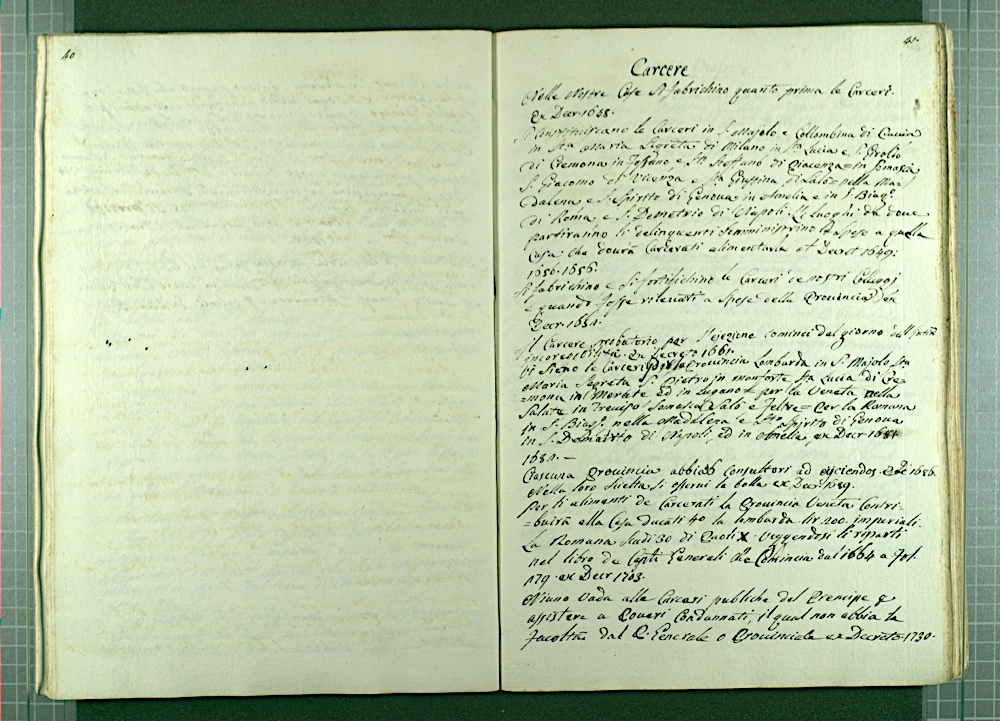 40
41.
Carcere
Nelle Nostre Case si fabrichino quanto prima le Carceri.
Ex Decr. 1638.
Si Constituiscano le Carceri in S. Majolo e Collombina di
in Sta Maria Segreta di Milano in Sta Lucia e S.
di Cremona in Tossano e Sto Steffano di Piacenza = in Somasca
S. Giacomo di Vicenza e Sta Giustina di Salò = nella Ma=
dalena e S. Spirito di Genova in Amelia e in S. Biagº
di Roma, e S. Demetrio di Napoli. Li luoghi da dove
partiranno li delinquenti somministrino le spese a quella
Casa che dourà Carcerati alimentarla et Decret 1649.
1656. 1656.
Si fabrichino e si fortifichino le Carceri de nostri Colleggj
e quando fosse rilevati a spese della Provincia ex
Decr. 1654.
Il Carcere probatorio per l'ejezione cominci dal giorno dell'
incoreggibilità. Ex Decreto 1661.
Vi sieno le Carceri per la Provincia Lombarda in S. Majolo Sta
Maria Segreta S. Pietro in monforte Sta Lucia di Cre=
=mona in Merate ed in Lugano = per la Veneta nella
Salute in Treviso Somasca Salò e Feltre = per la Romana
in S. Biagº nella Maddalena e Sto Spirito di Genova
in S. Demetrio di Napoli, ed in Amelia ex Decr 1681
1684. —
Ciascuna Provincia abbia 6 Consultori ad ejiciendos. 1686.
Nella loro scielta si osservi la bolla ex Decr. 1689.
Per li alimenti de Carcerati la Provincia Veneta Contri=
=buirà alla Casa Ducati 40 la lombarda lir 200. imperiali.
La Romana Scudi 30 di Paoli X. Veggendosi li riparti
nel libro de Capti Generali che Comincia dal 1664 a fol.
179. ex Decr 1703.
Niuno vada alle Carceri publiche del Prencipe p
assistere a Poveri Condannati, il qual non abbia la
facoltà dal P. Generale o Provinciale ex Decreto. 1730.